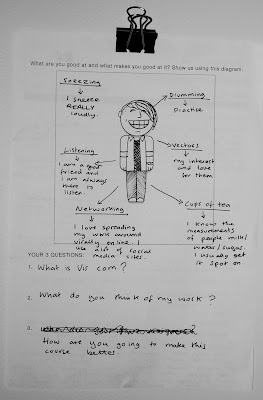 What are you good at and what makes you good at it? Show us using this diagram.
Sneezing
I sneeze
REALLY
loudly.
Drumming
Practise
Listening
I am a good
friend and
I am always
there to
listen.
Vectors
my interest
and love
for them
Networking
I love spreading
my work around
virally online. I
use alot of social
media sites.
Cups of tea
I know the
measurements
of people milk/
water/sugar.
I usually get
it spot on.
YOUR 3 QUESTIONS:
1. What is Vis com?
2. What do you think of my work?
3.
How are you going to make this
course better